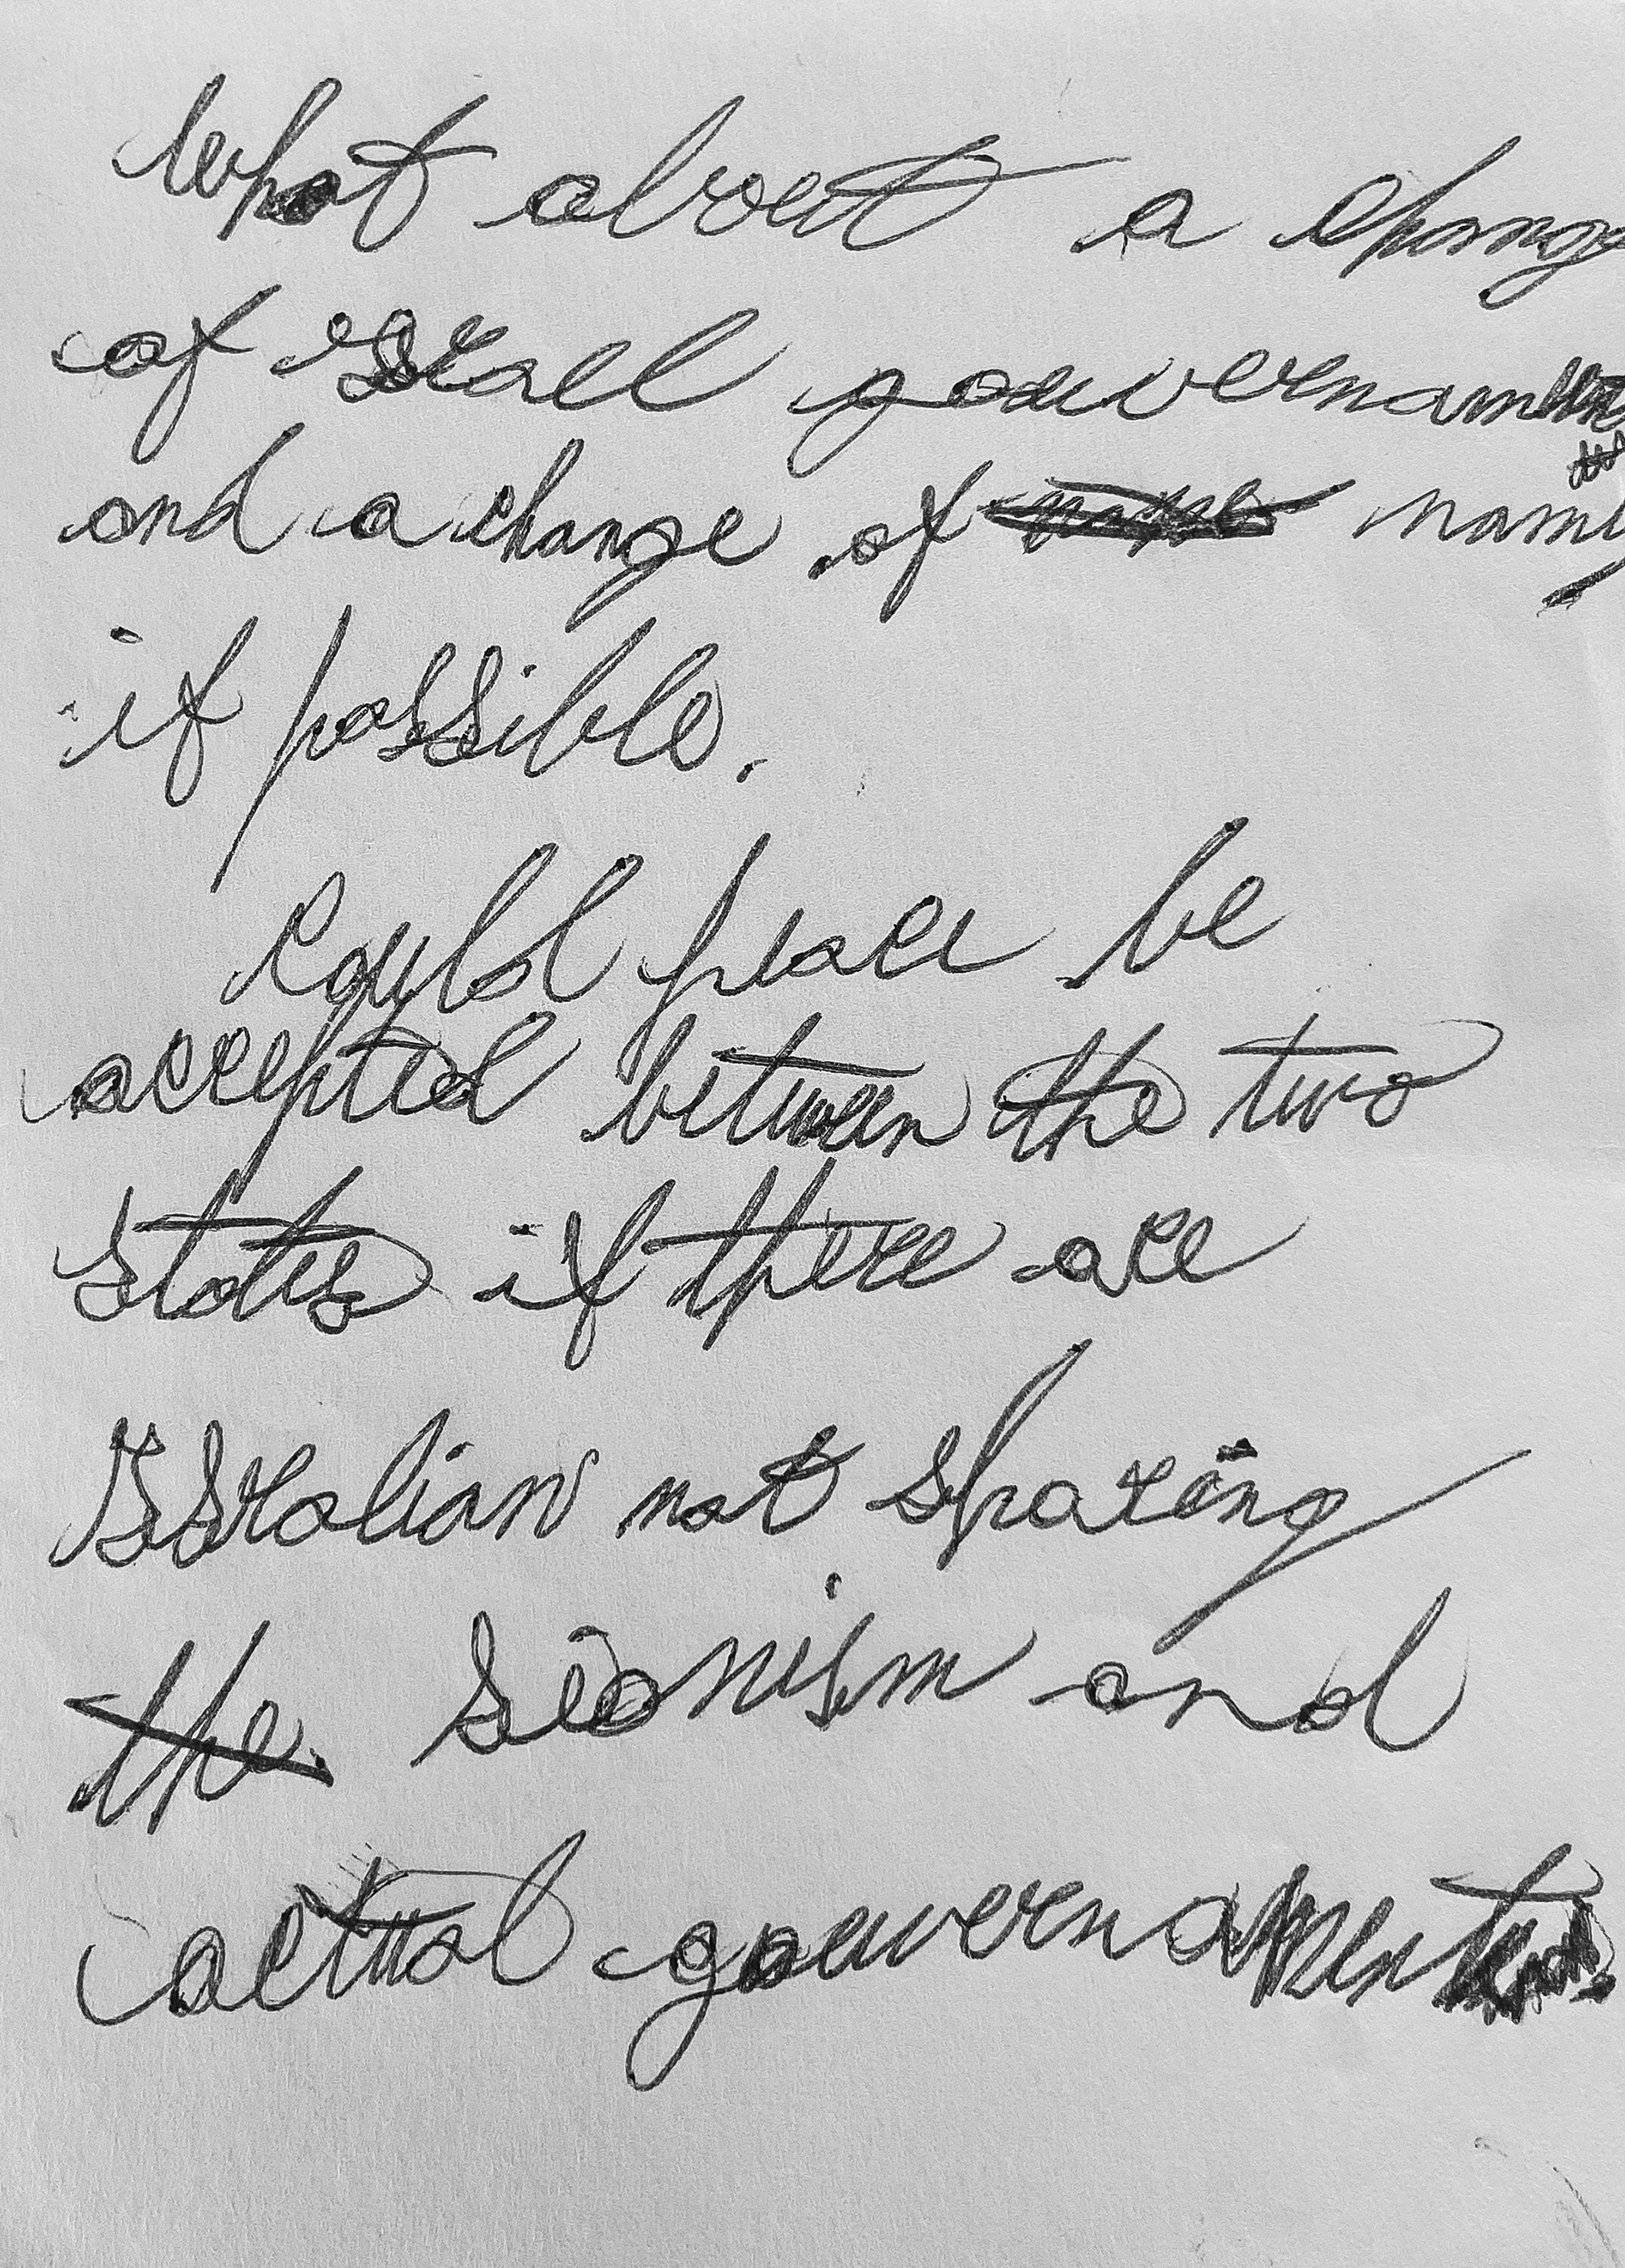 What about a change
of israell gouvernament
and a change of name
if possible.
Could peace be
accepted between the two
states if there are
Issralian not sharing
the Sionism and
actual gouvernament.